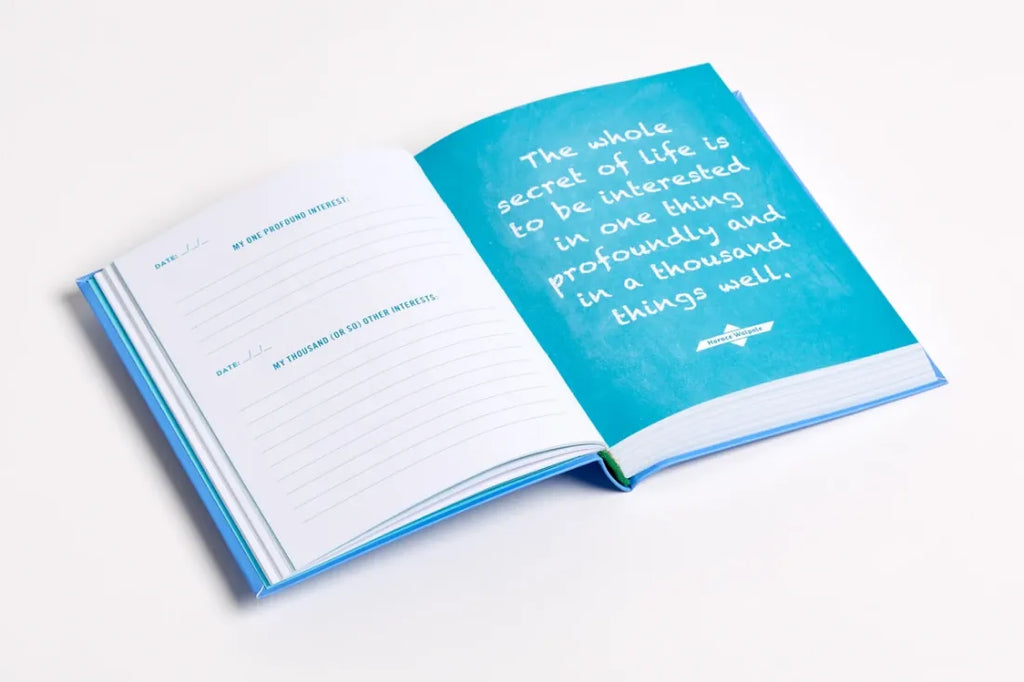 DATE: _/_/_
MY ONE PROFOUND INTEREST:
DATE: _/_/_
MY THOUSAND (OR SO) OTHER INTERESTS:
The whole
secret of life is
to be interested
in one thing
profoundly and
in a thousand
things well.
Horace Walpole